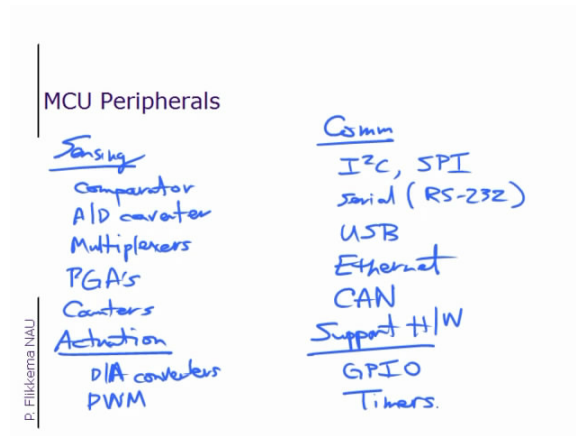 MCU Peripherals
Sensing
Comparator
A/D converter
Multiplexers
PGA's
Counters
Actuation
D/A converters
PWM
Comm
I²C, SPI
Serial (RS-232)
USB
Ethernet
CAN
Support H/W
GPIO
Timers.
P. Flikkema NAU